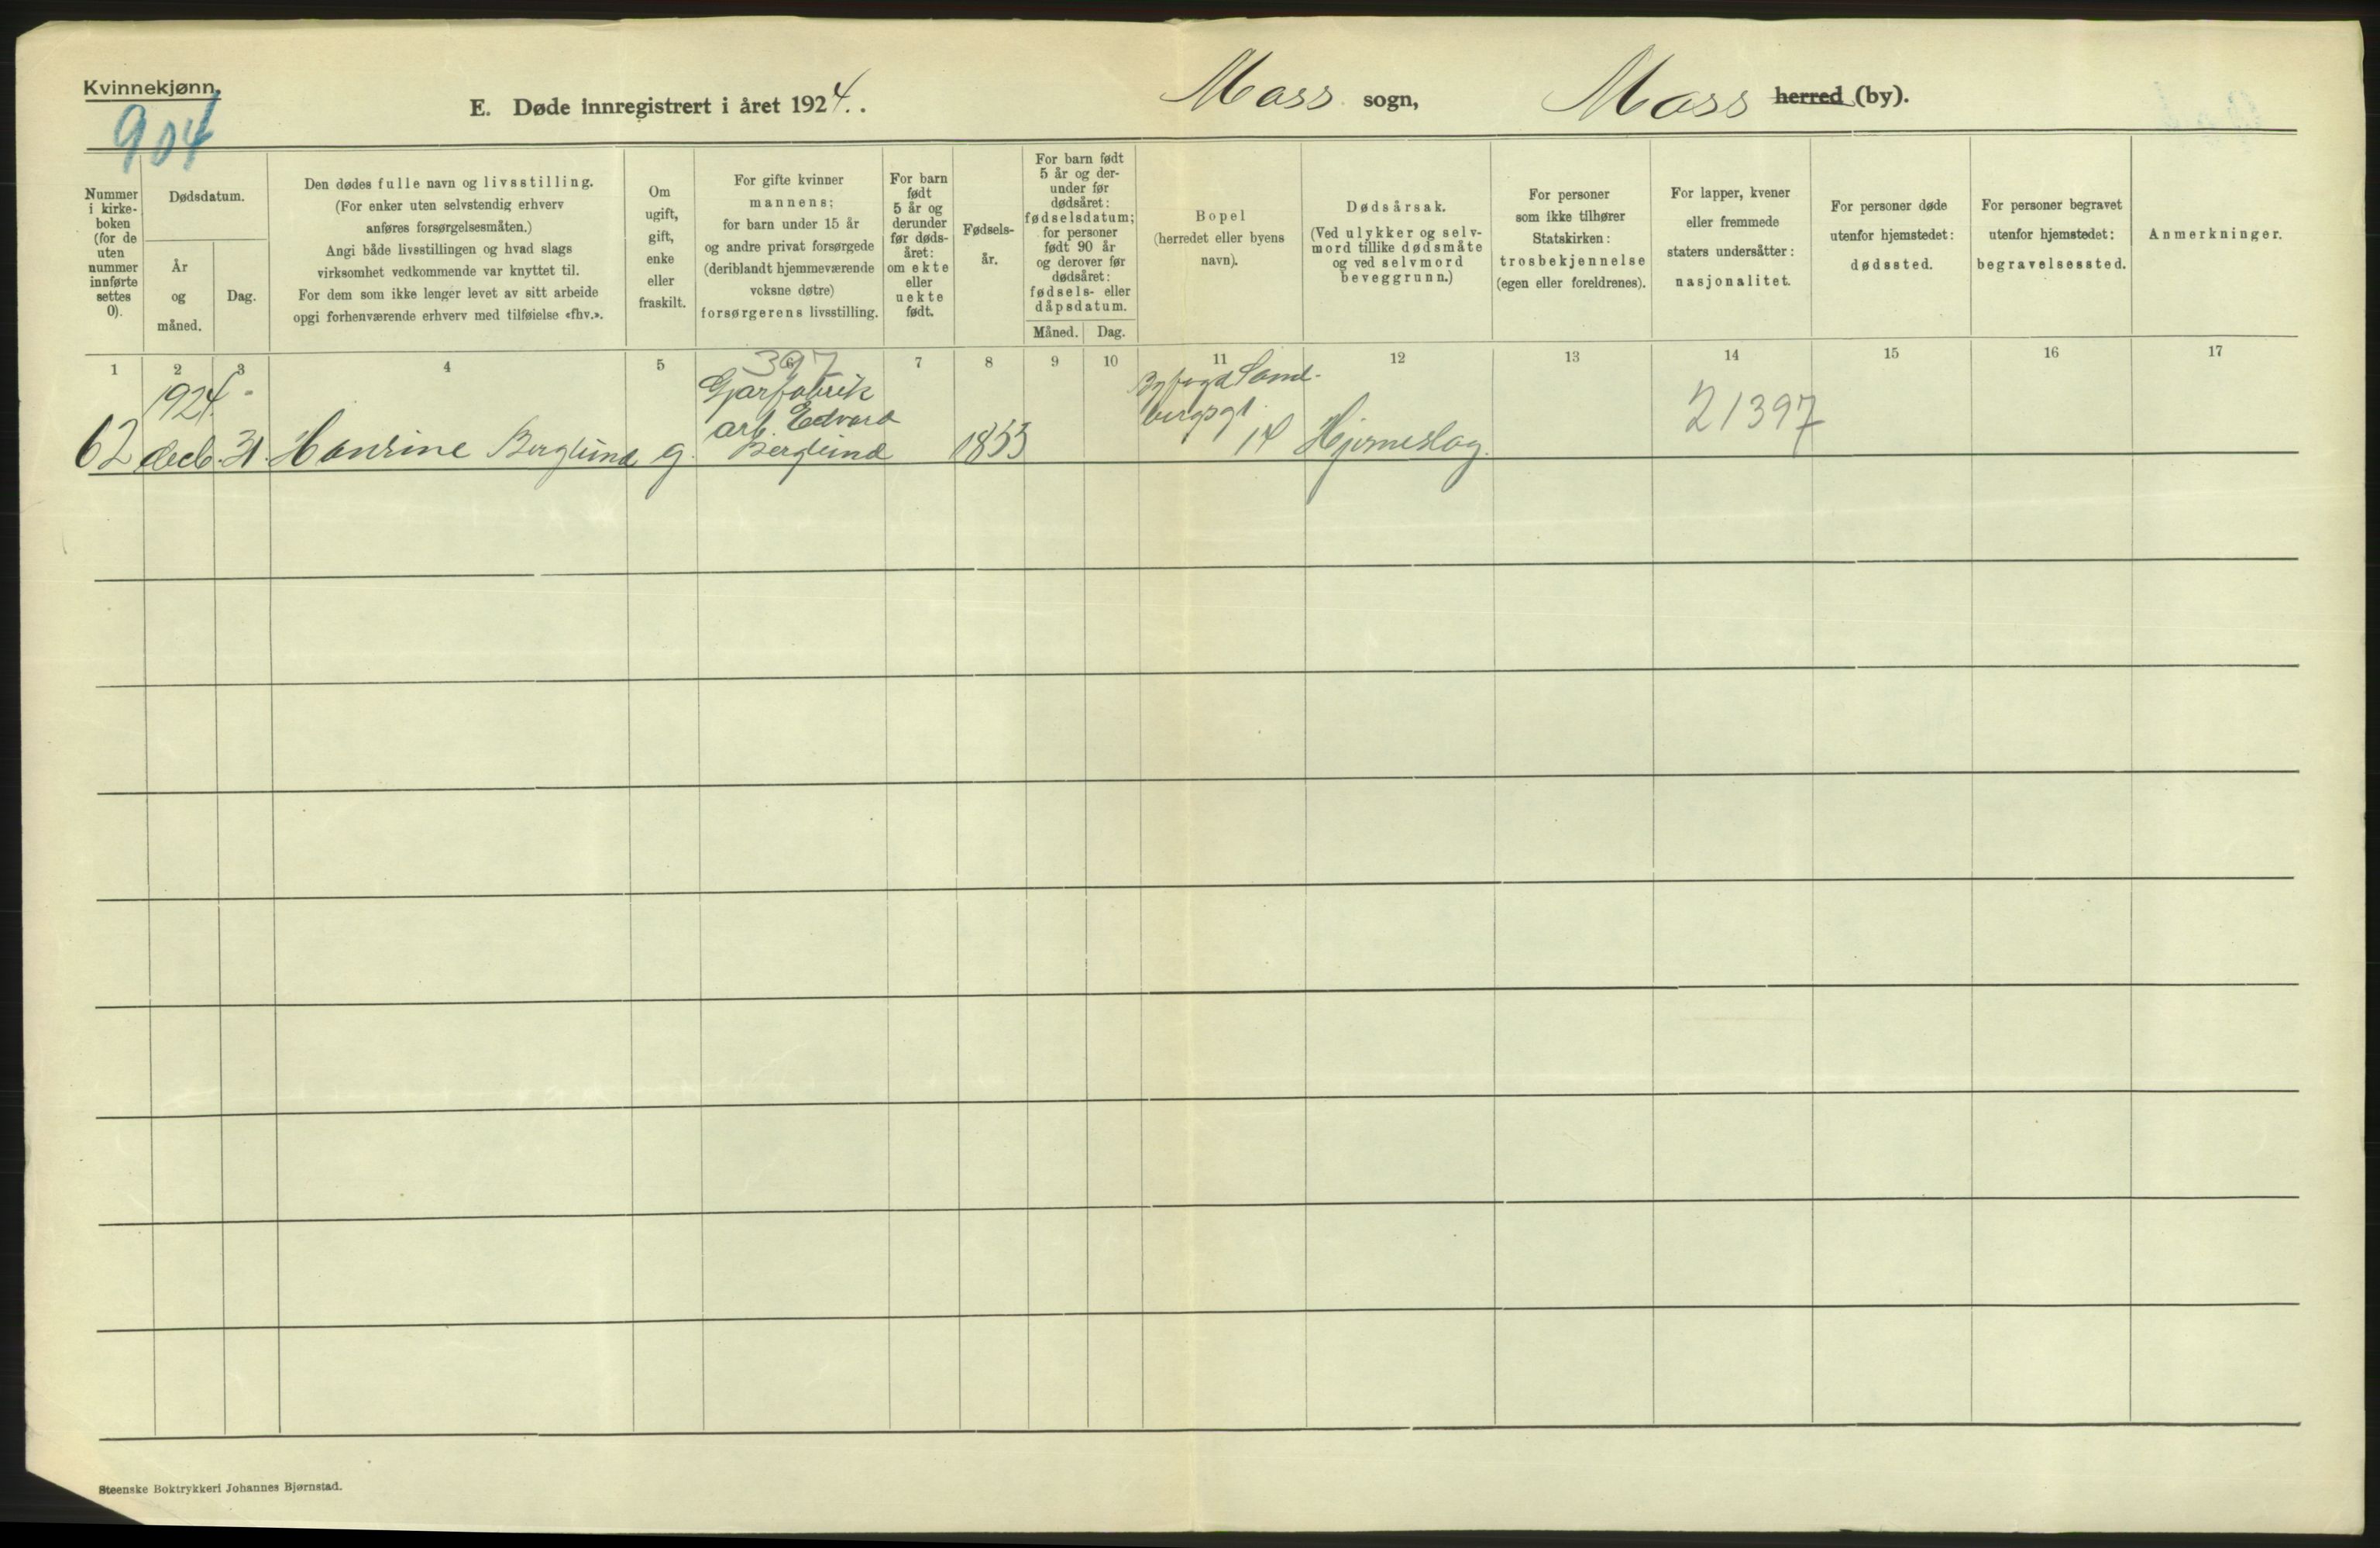 Kvinnekjønn.
904
E. Døde innregistrert i året 1924. .
Moss sogn,
Moss herred (by).
Nummer
i kirke-
boken
(for de
uten
nummer
innførte
settes
0).
Dødsdatum.
År
og
måned.
Dag.
Den dødes fulle navn og livsstilling.
(For enker uten selvstendig erhverv
anføres forsørgelsesmåten.)
Angi både livsstillingen og hvad slags
virksomhet vedkommende var knyttet til.
For dem som ikke lenger levet av sitt arbeide
opgi forhenværende erhverv med tilføielse «fhv.».
Om
ugift,
gift,
enke
eller
fraskilt.
For gifte kvinner
mannens;
for barn under 15 år
og andre privat forsørgede
(deriblandt hjemmeværende
voksne døtre)
forsørgerens livsstilling.
For barn
født
5 år og
derunder
før døds-
året:
om ekte
eller
uekte
født.
Fødsels-
år.
For barn født
5 år og der-
under før
dødsåret:
fødselsdatum;
for personer
født 90 år
og derover før
dødsåret:
fødsels- eller
dåpsdatum.
Måned. Dag.
Bopel
(herredet eller byens
navn).
Dødsårsak.
(Ved ulykker og selv-
mord tillike dødsmåte
og ved selvmord
beveggrunn.)
For personer
som ikke tilhører
Statskirken:
trosbekjennelse
(egen eller foreldrenes).
For lapper, kvener
eller fremmede
staters undersåtter:
nasjonalitet.
For personer døde
utenfor hjemstedet:
dødssted.
For personer begravet
utenfor hjemstedet:
begravelsessted.
Anmerkninger.
1 2 3 4 5 6 7 8 9 10 11 12 13 14 15 16 17
397
62
1924
decb. 31.
Hansine Berglund
g.
Gjærfabrik
arb. Edvard
Berglund
1853
Byfogd Sand-
bergsgt.
14
Hjerneslag.
21397
Steenske Boktrykkeri Johannes Bjørnstad.